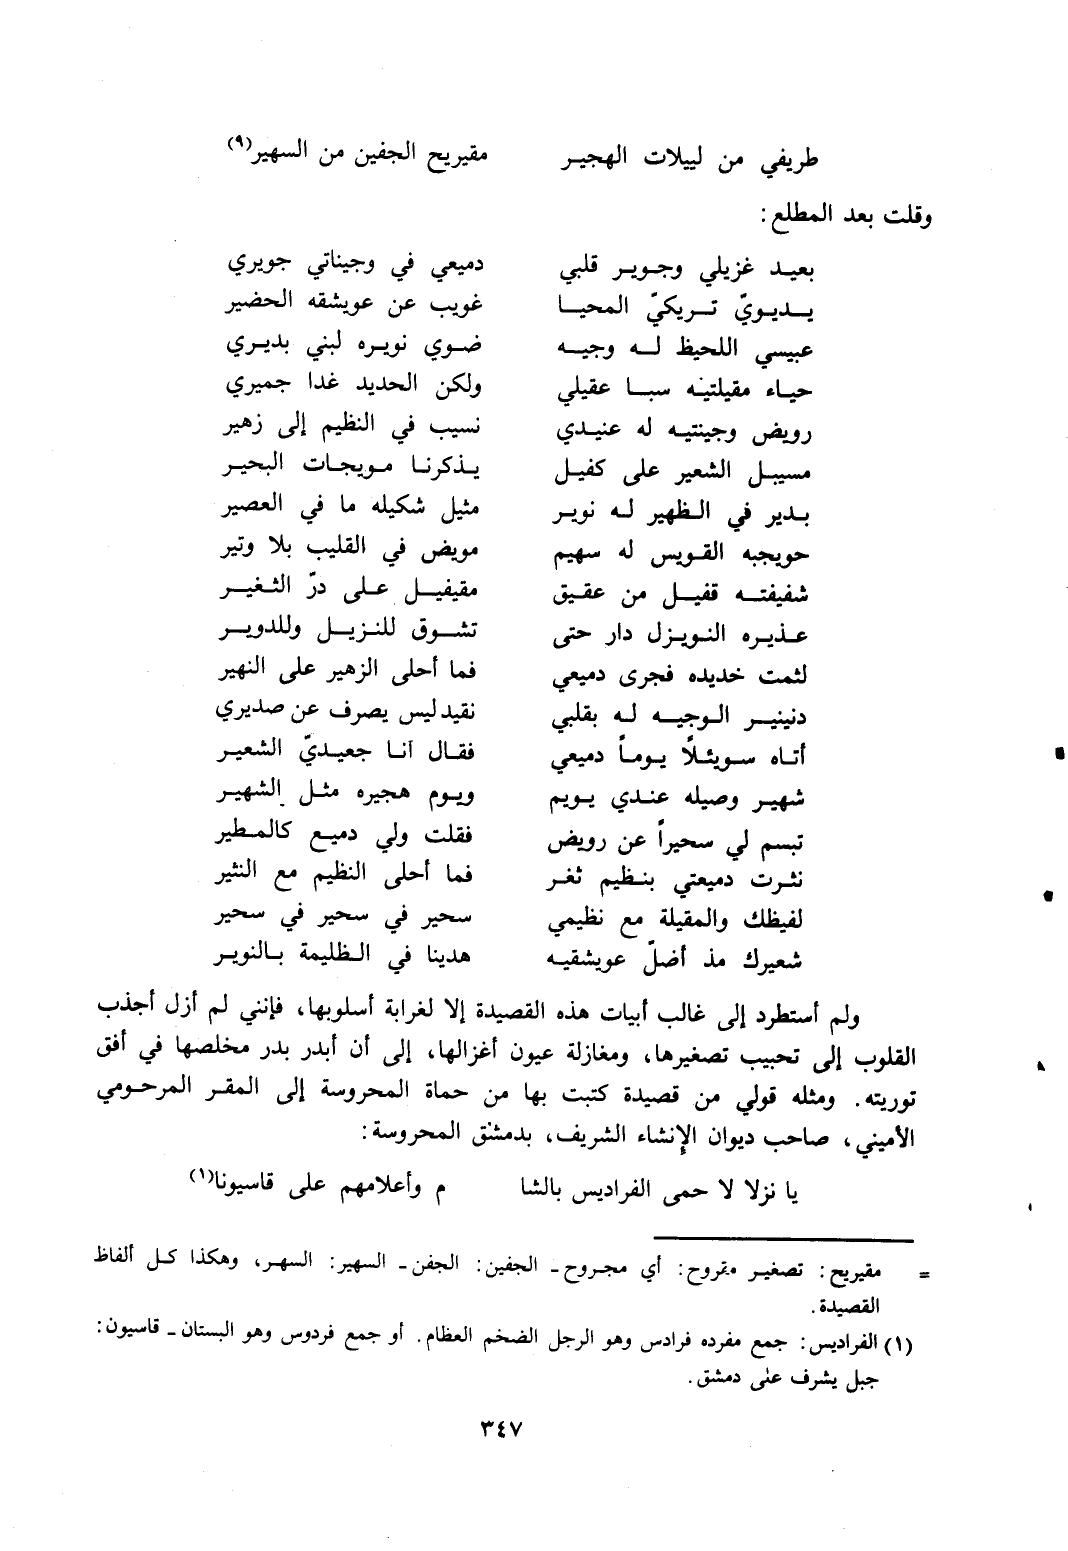 طريفي من لييلات الهجير مقيريح الجفين من السهير(٩)
وقلت بعد المطلع:
بعيد غزيلي وجوير قلبي دميعي في وجيناتي جويري
يديويّ تريكيّ المحيا غويب عن عويشقه الحضير
عبيسي اللحيظ له وجيه ضوي نويره لبني بديري
حياء مقيلتيه سبا عقيلي ولكن الحديد غدا جميري
رويض وجينتيه له عنيدي نسيب في النظيم إلى زهير
مسيبل الشعير على كفيل يذكرنا مويجات البحير
بدير في الظهير له نوير مثيل شكيله ما في العصير
حويجبه القويس له سهيم مويض في القليب بلا وتير
شفيفته قفيل من عقيق مقيفيل على درّ الثغير
عذيره النويزل دار حتى تشوق للنزيل وللدوير
لثمت خديده فجرى دميعي فما أحلى الزهير على النهير
دنينير الوجيه له بقلبي نقيد ليس يصرف عن صديري
أتاه سويئلاً يوماً دميعي فقال أنا جعيديّ الشعير
شهير وصيله عندي يويم ويوم هجيره مثل الشهير
تبسم لي سحيراً عن رويض فقلت ولي دميع كالمطير
نثرت دميعتي بنظيم ثغر فما أحلى النظيم مع النثير
لفيظك والمقيلة مع نظيمي سحير في سحير في سحير
شعيرك مذ أضلّ عويشقيه هدينا في الظليمة بالنوير
ولم أستطرد إلى غالب أبيات هذه القصيدة إلا لغرابة أسلوبها، فإنني لم أزل أجذب
القلوب إلى تحبيب تصغيرها، ومغازلة عيون أغزالها، إلى أن أبدر بدر مخلصها في أفق
توريته. ومثله قولي من قصيدة كتبت بها من حماة المحروسة إلى المقر المرحومي
الأميني، صاحب ديوان الإنشاء الشريف، بدمشق المحروسة:
يا نزلا لا حمى الفراديس بالشا م وأعلامهم على قاسيونا(١)
= مقيريح: تصغير مقروح: أي مجروح ـ الجفين: الجفن ـ السهير: السهر، وهكذا كل ألفاظ
القصيدة.
(١) الفراديس: جمع مفرده فرادس وهو الرجل الضخم العظام. أو جمع فردوس وهو البستان ـ قاسيون:
جبل يشرف على دمشق.
٣٤٧